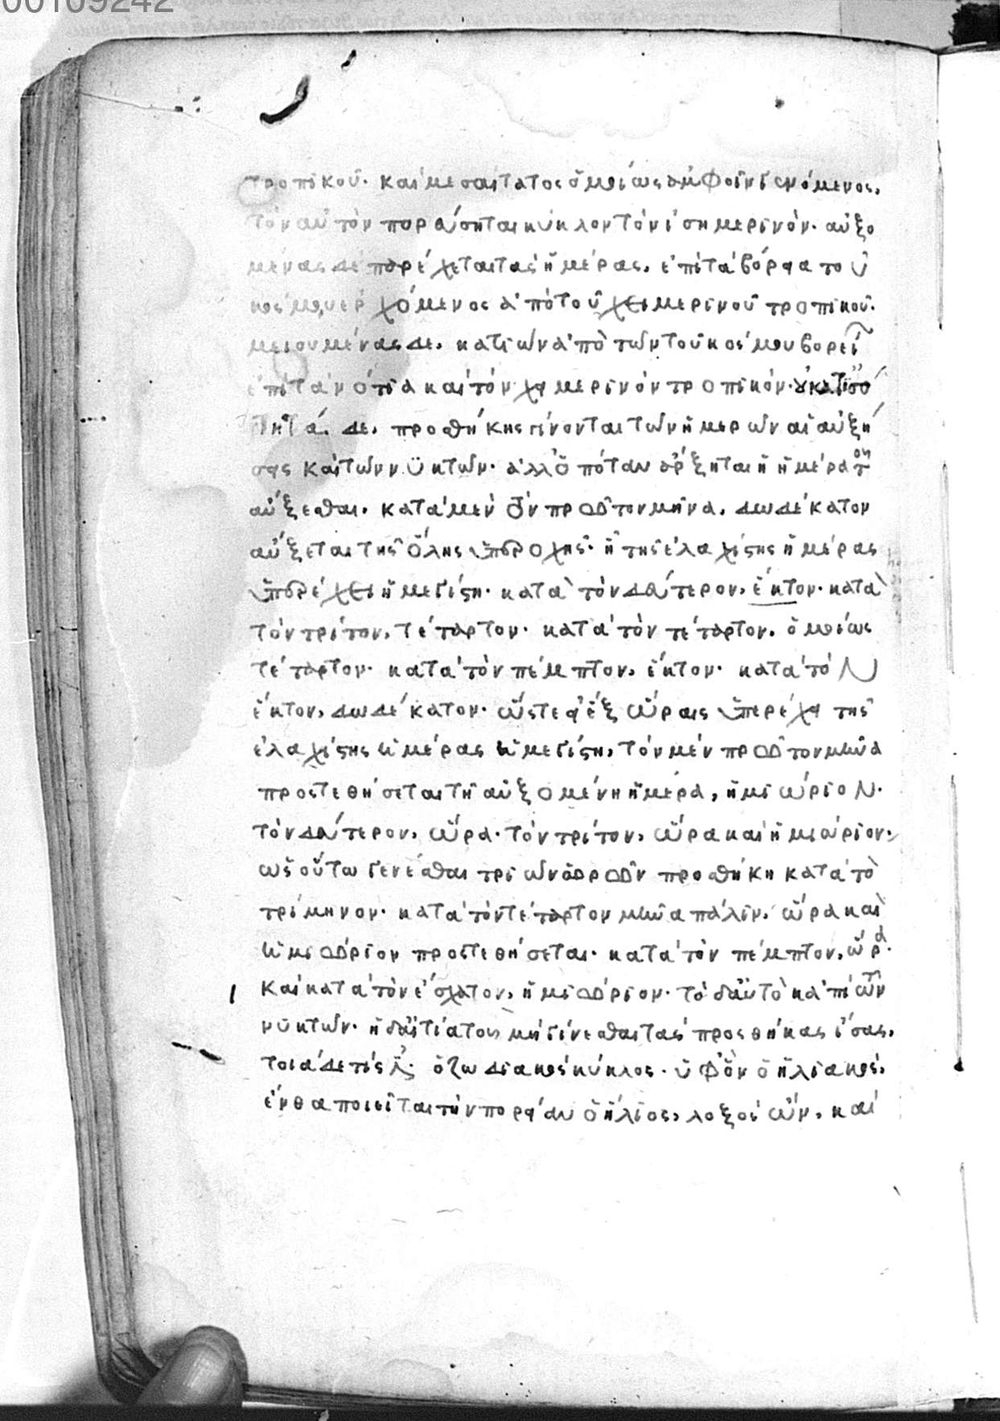 00109242
τροπικοῦ· καὶ μεσαίτατος ὁμοίως ἀμφοῖν γενόμενος,
τὸν αὐτὸν πορεύσηται κύκλον τὸν ἰσημερινόν· αὐξο
μένας δὲ παρέχεται τὰς ἡμέρας, ἐπὶ τὰ βόρεια τοῦ
κόσμου ἐρχόμενος ἀπὸ τοῦ χειμερινοῦ τροπικοῦ·
μειουμένας δὲ, κατιὼν ἀπὸ τῶν τοῦ κόσμου βορείων
ἐπὶ τὰ νότια καὶ τὸν χειμερινὸν τροπικόν· οὐ κατ ἰσό
τητα δὲ, προσθήκης γίνονται τῶν ἡμερῶν αἱ αὐξή
σεις καὶ τῶν νυκτῶν· ἀλλ ὁπόταν ἄρξηται ἡ ἡμέρα τοῦ
αὔξεσθαι, κατὰ μὲν οὖν πρῶτον μῆνα, δωδέκατον
αὔξεται τῆς ὅλης ὑπεροχῆς· ἧ τῆς ἐλαχίστης ἡμέρας
ὑπερέχει ἡ μεγίστη· κατὰ τὸν δεύτερον, ἕκτον· κατὰ
τὸν τρίτον, τέταρτον· κατὰ τὸν τέταρτον, ὁμοίως
τέταρτον· κατὰ τὸν πέμπτον, ἕκτον· κατὰ τὸν
ἕκτον, δωδέκατον· ὥστε εἰ ἓξ ὥραις ὑπερέχει τῆς
ἐλαχίστης ἡμέρας ἡ μεγίστη, τὸν μὲν πρῶτον μῆνα
προστεθήσεται τῇ αὐξομένῃ ἡμέρα, ἡμιώριον·
τὸν δεύτερον, ὥρα· τὸν τρίτον, ὥρα καὶ ἡμιώριον·
ὡς οὕτω γενέσθαι τριῶν ὡρῶν προσθήκη κατὰ τὸ
τρίμηνον· κατὰ τὸν τέταρτον μῆνα πάλιν, ὥρα καὶ
ἡμιώριον προστεθήσεται· κατὰ τὸν πέμπτον, ὥρα·
καὶ κατὰ τὸν ἔσχατον, ἡμιώριον· τὸ δ αὐτὸ κἀπὶ τῶν
νυκτῶν· ἡ δ αἰτία τοῦ μὴ γίνεσθαι τὰς προσθήκας ἴσας,
τοιάδε τίς ἐστι· ὁ ζωδιακὸς κύκλος· ὑφ ὃν ὁ ἡλιακὸς,
ἔνθα ποιεῖται τὴν πορείαν ὁ ἥλιος, λοξὸς ὢν, καὶ